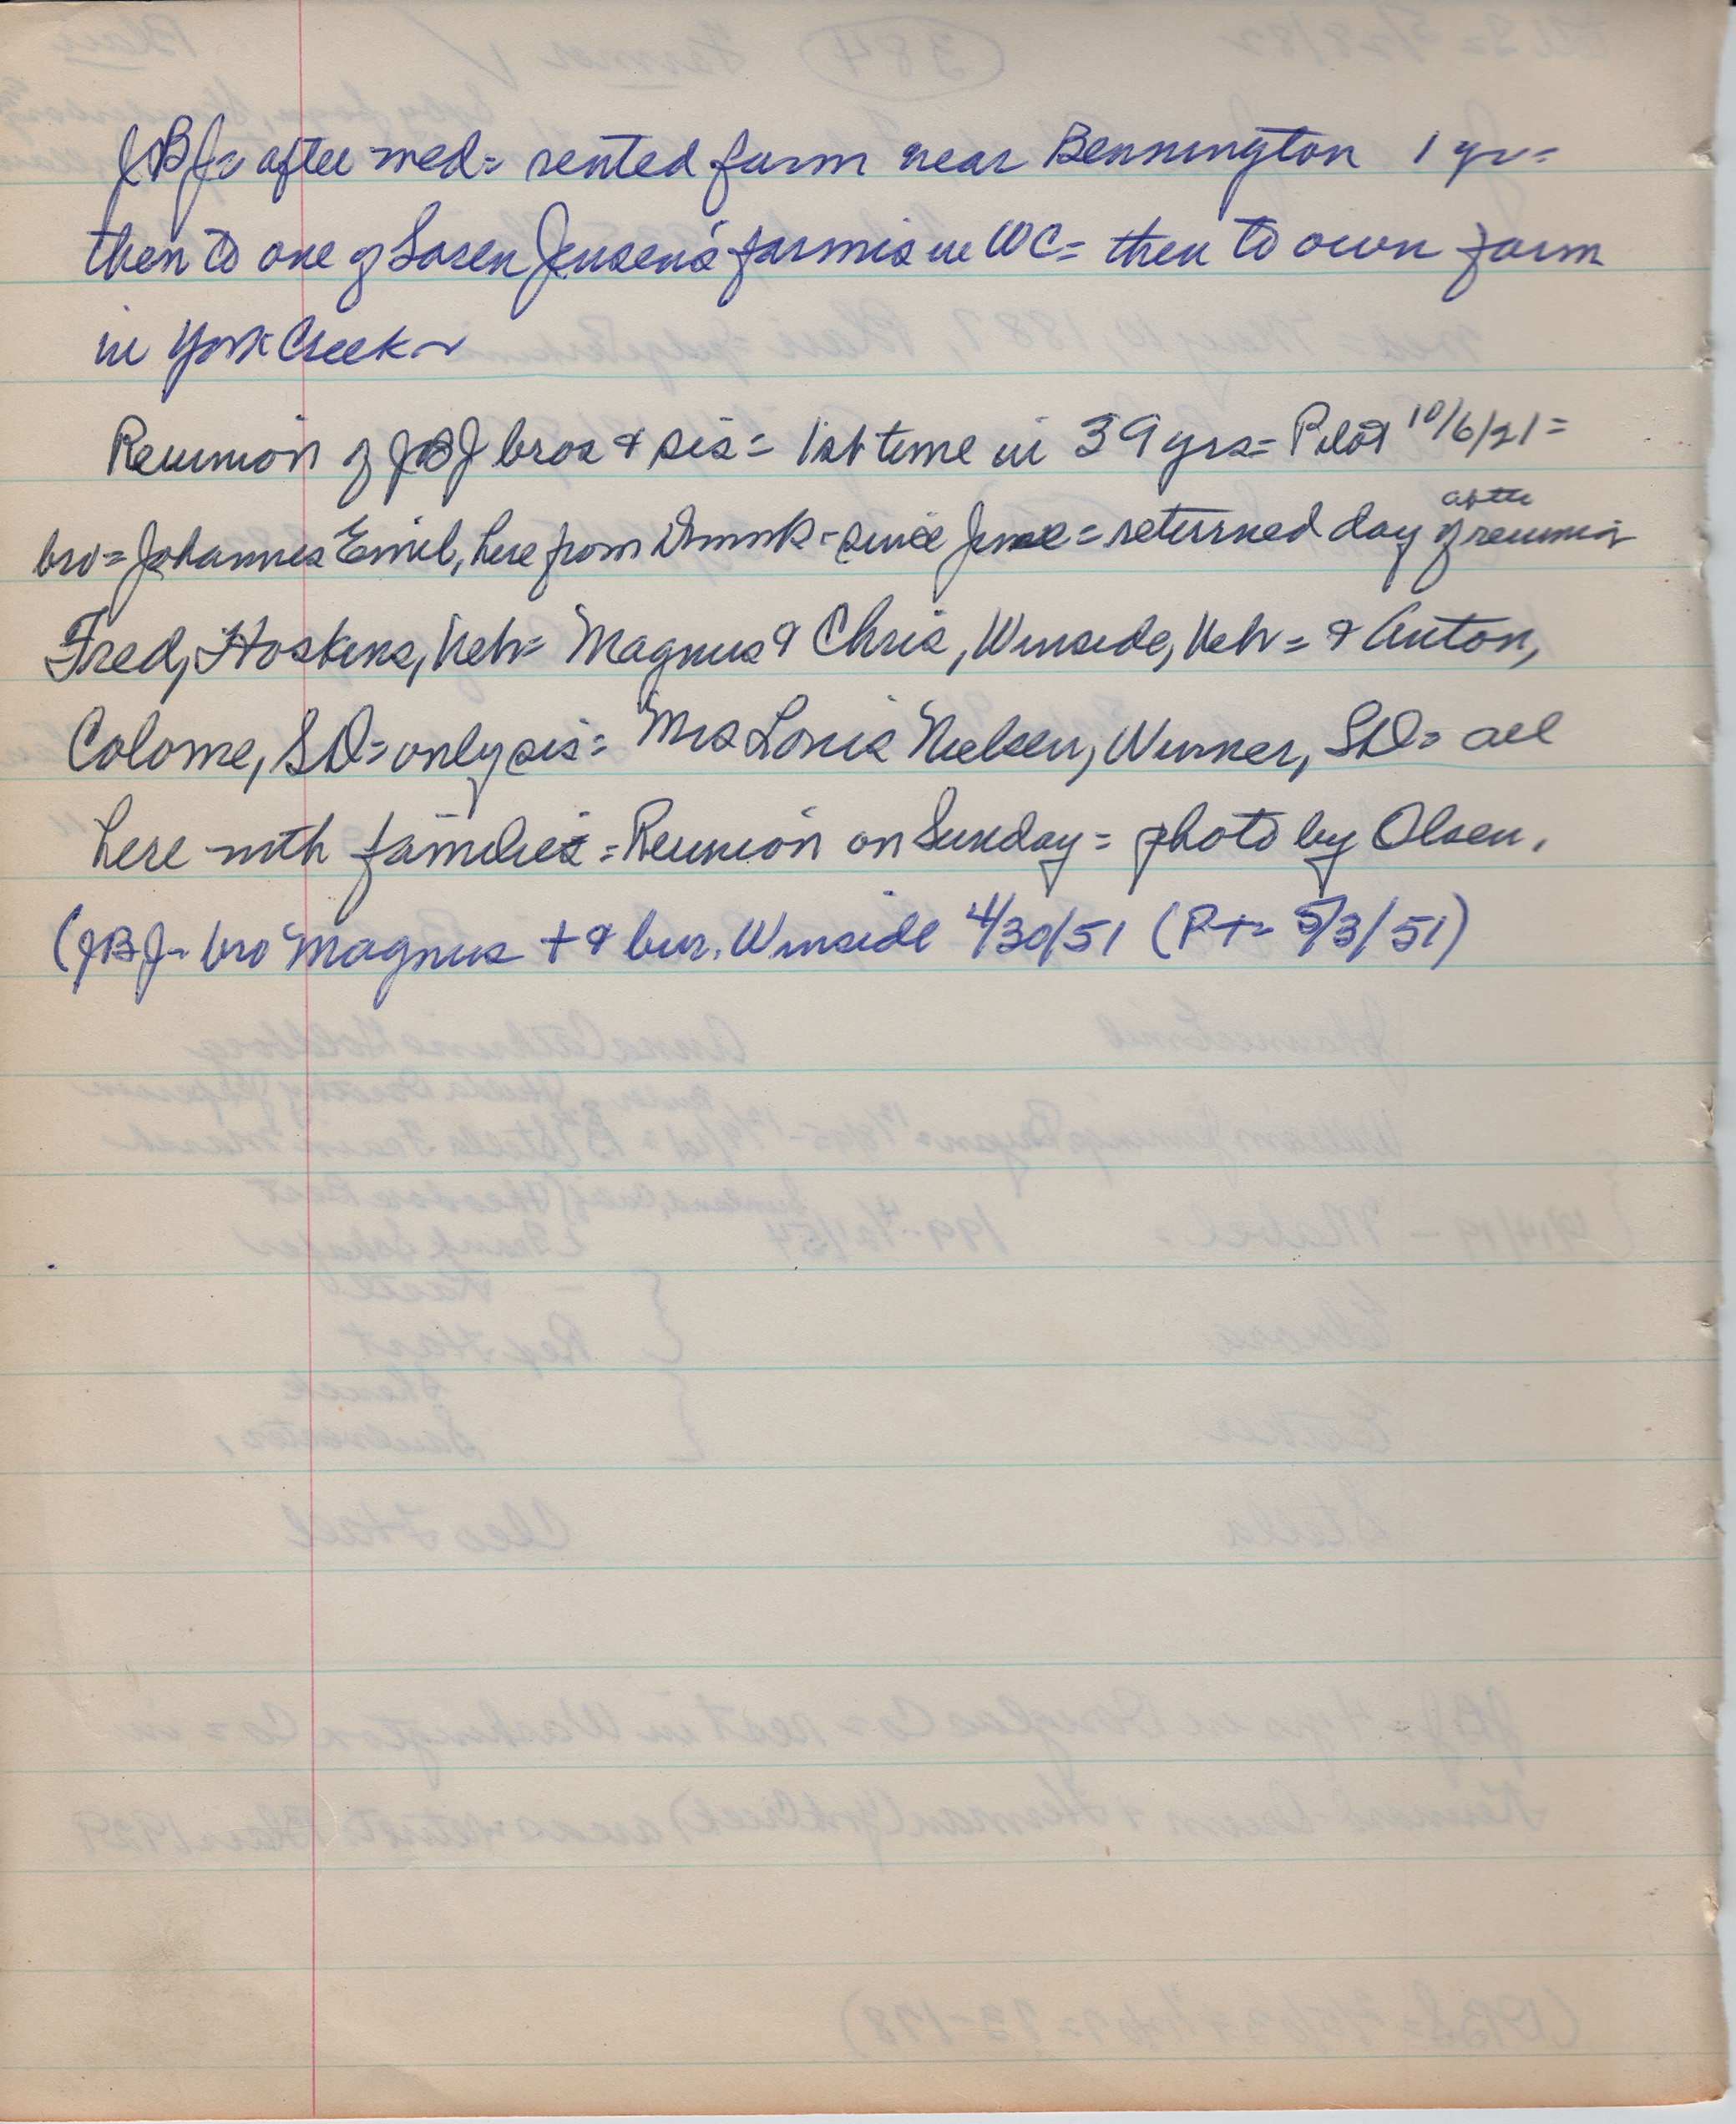 JBJ= after med= rented farm near Bennington 1 yr=
then to one of Soren Jensen's farms in WC= then to own farm
in York Creek~
Reunion of JBJ bros & sis= 1st time in 39 yrs= Pilot 10/6/21=
bro= Johannes Emil, here from Dnmk - since June = returned day after reunion
Fred, Hoskins, Neb= Magnus & Chris, Winside, Neb= & Anton,
Colome, SD= only sis= Mrs Louis Nielsen, Winner, SD= all
here with families = Reunion on Sunday = photo by Olsen.
(JBJ- bro Magnus + & bur. Winside 4/30/51 (PT= 5/3/51)